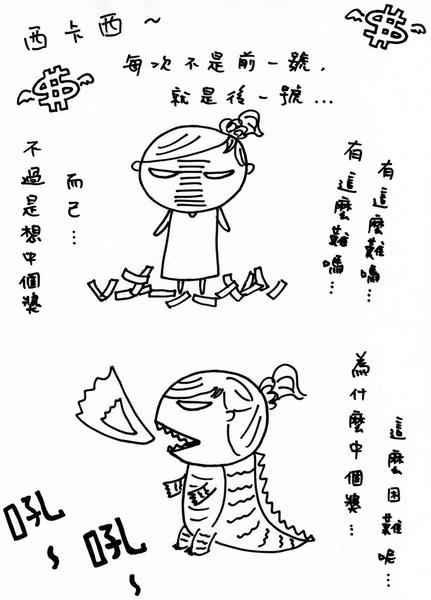 西卡西~
每次不是前一號,
就是後一號...
有這麼難嗎...
有這麼難嗎...
而已...
不過是想中個獎
為什麼中個獎...
這麼困難呢...
吼~
吼~